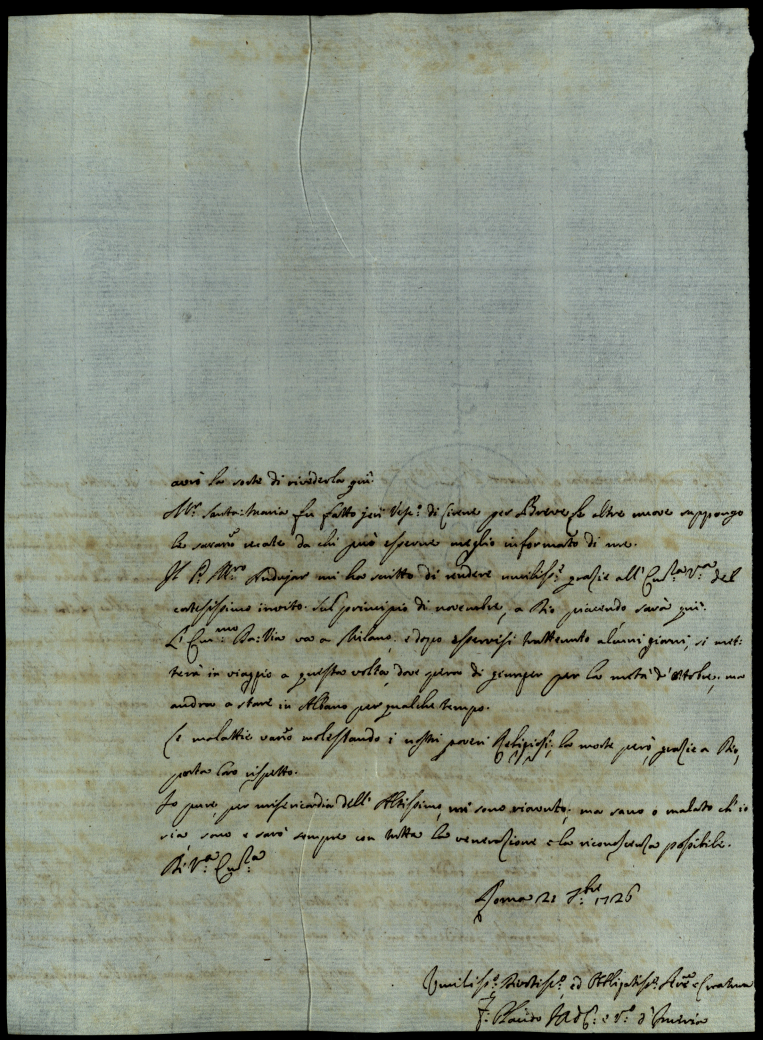 avrò la sorte di rivederla quì.
Mr. Santa Maria fu fatto jeri Vesc.o di Cirene per Breve. Le altre nuove suppongo
le saranno recate da chi può esserne meglio informato di me.
Il P. Mro. Andujar mi ha scritto di rendere umiliss.e grazie all' Em.za V.ra del
cortesissimo invito. Sul principio di novembre, a Dio piacendo sarà quì.
L' Em.mo Da Via va a Milano, e dopo esservisi trattenuto alcuni giorni, si met-
terà in viaggio a questa volta, dove spera di giunger per la metà d' ottobre, ma
andrà a stare in Albano per qualche tempo.
Le malattie vanno molestando i nostri poveri Religiosi; la morte però, grazie a Dio,
porta loro rispetto.
Io pure, per misericordia dell' Altissimo, mi sono riavuto; ma sano o malato ch' io
sia, sono e sarò sempre con tutta la venerazione e la riconoscenza possibile.
Di V.a Em.za
Roma 21 7.bre 1726
Umiliss.o Devotiss.o ed Obbligatiss.o Ser.e e Creatura
F. Placido